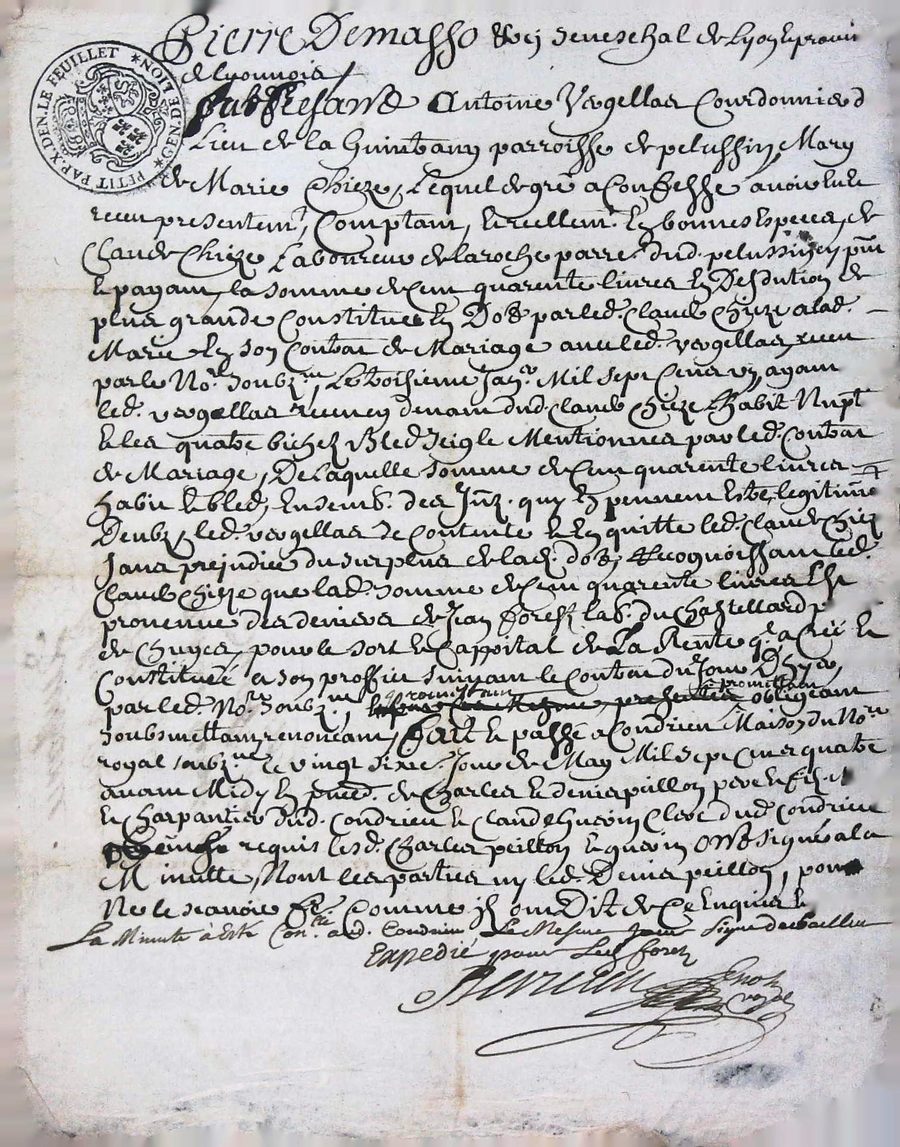 PETIT PAP. X. DEN. LE FEUILLET * GEN. DE LION *
Pierre Demasso seneschal de Lyon & prouin
de Lyonnois
fut Presant Antoine Vergellas Courdonnier d
Lieu de la Guintany parroisse de pelussin, Mary
de Marie Chieze, Lequel de gré a Confessé auoir
receu presentemt. Comptant, Et reellemt. En bonnes Especes, de
Claude Chieze Laboureur de laroche parre. dud. pelussin
Et payant, la somme de Cent quarente liures En Desdution de
plus grande Constituee En Dot par led. Claude Chieze a lad.
Marie En son Contrat de Mariage auec led. Vergellas, receu
par le Nore. soubzne. Le troisieme Janr. Mil sept Cens ayant
led. Vergellas receu dud. Claude Chieze habit Nupt
Et les quatre bichez Bled seigle Mentionnes par led. Contrat
de Mariage, De Laquelle somme de Cent quarente liures
habit Et bled, Ensemb. des quy En peuuent Estre legitime
Deubz, led. Vergellas se Contente Et En quitte led. Claude Chieze
sans prejudice du surplus de lad. dot, Recognoissant led.
Claude Chieze que lad. somme de Cent quarente liures Est
prouenue des deniers de Jean forest lab. du Chastellard
de Chuyes, pour le sort Et Cappital de La Rente q. a Créé Et
Constituée a son proffict suiuant le Contrat du Jour D'hyer,
par led. Nore. soubzne. promettant obligeant
soubmettant, renonceant, Fait Et passé a Condrieu Maison du Nore.
royal soubzne. Le vingt sixie. Jour de May Mil sept Cens quatre
auant Midy En de Charles Et denis peillon pere Et fils
Charpantier dud. Condrieu Et Claude Guerin Clerc dud. Condrieu
requis lesd. Charles peillon Et guerin Ont signés a la
Minutte, Non les parties ny led. Denis peillon, pour
Ne le scauoir fe. Comme ils Ont Dit de Ce Enquis Et
La Minute à Esté Conlle. a Condrieu Le Mesme Jour Signé
Expedié pour Led. forest